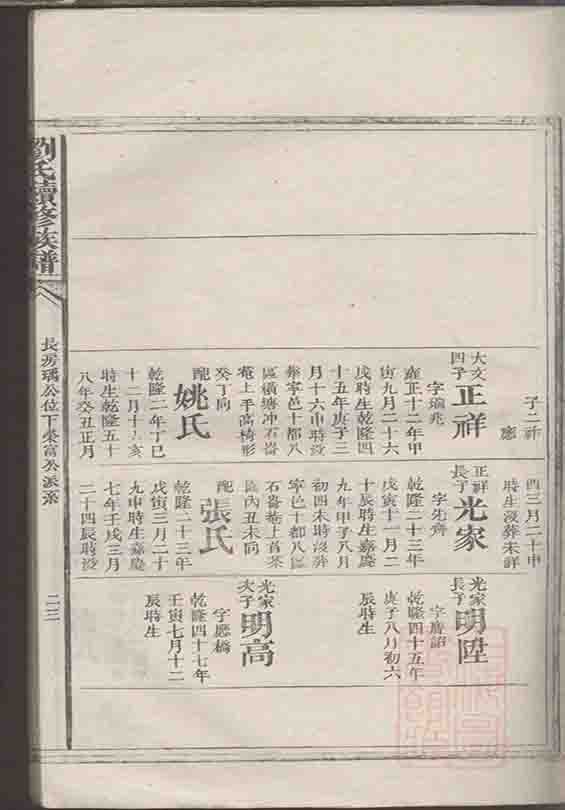 劉氏續修族譜
長房瑀公位下榮富公派系
二三
子二祥
應
大文
四子
正祥
字瑞兆
雍正十二年甲
寅九月二十六
戌時生乾隆四
十五年庚子三
月十六申時沒
葬寧邑十都八
區橫塘沖石崙
菴上手高椅形
癸丁向
配
姚氏
乾隆二年丁巳
十二月十六亥
時生乾隆五十
八年癸丑正月
酉三月二十申
時生沒葬未詳
正祥
長子
光家
字先齊
乾隆二十三年
戊寅十一月二
十辰時生嘉慶
九年甲子八月
初四未時沒葬
寧邑十都八區
石崙菴上首茶
區內丑未向
配
張氏
乾隆二十三年
戊寅三月二十
九申時生嘉慶
七年壬戌三月
二十四辰時沒
光家
長子
明陞
字廣詔
乾隆四十五年
庚子八月初六
辰時生
光家
次子
明高
字應橋
乾隆四十七年
壬寅七月十二
辰時生